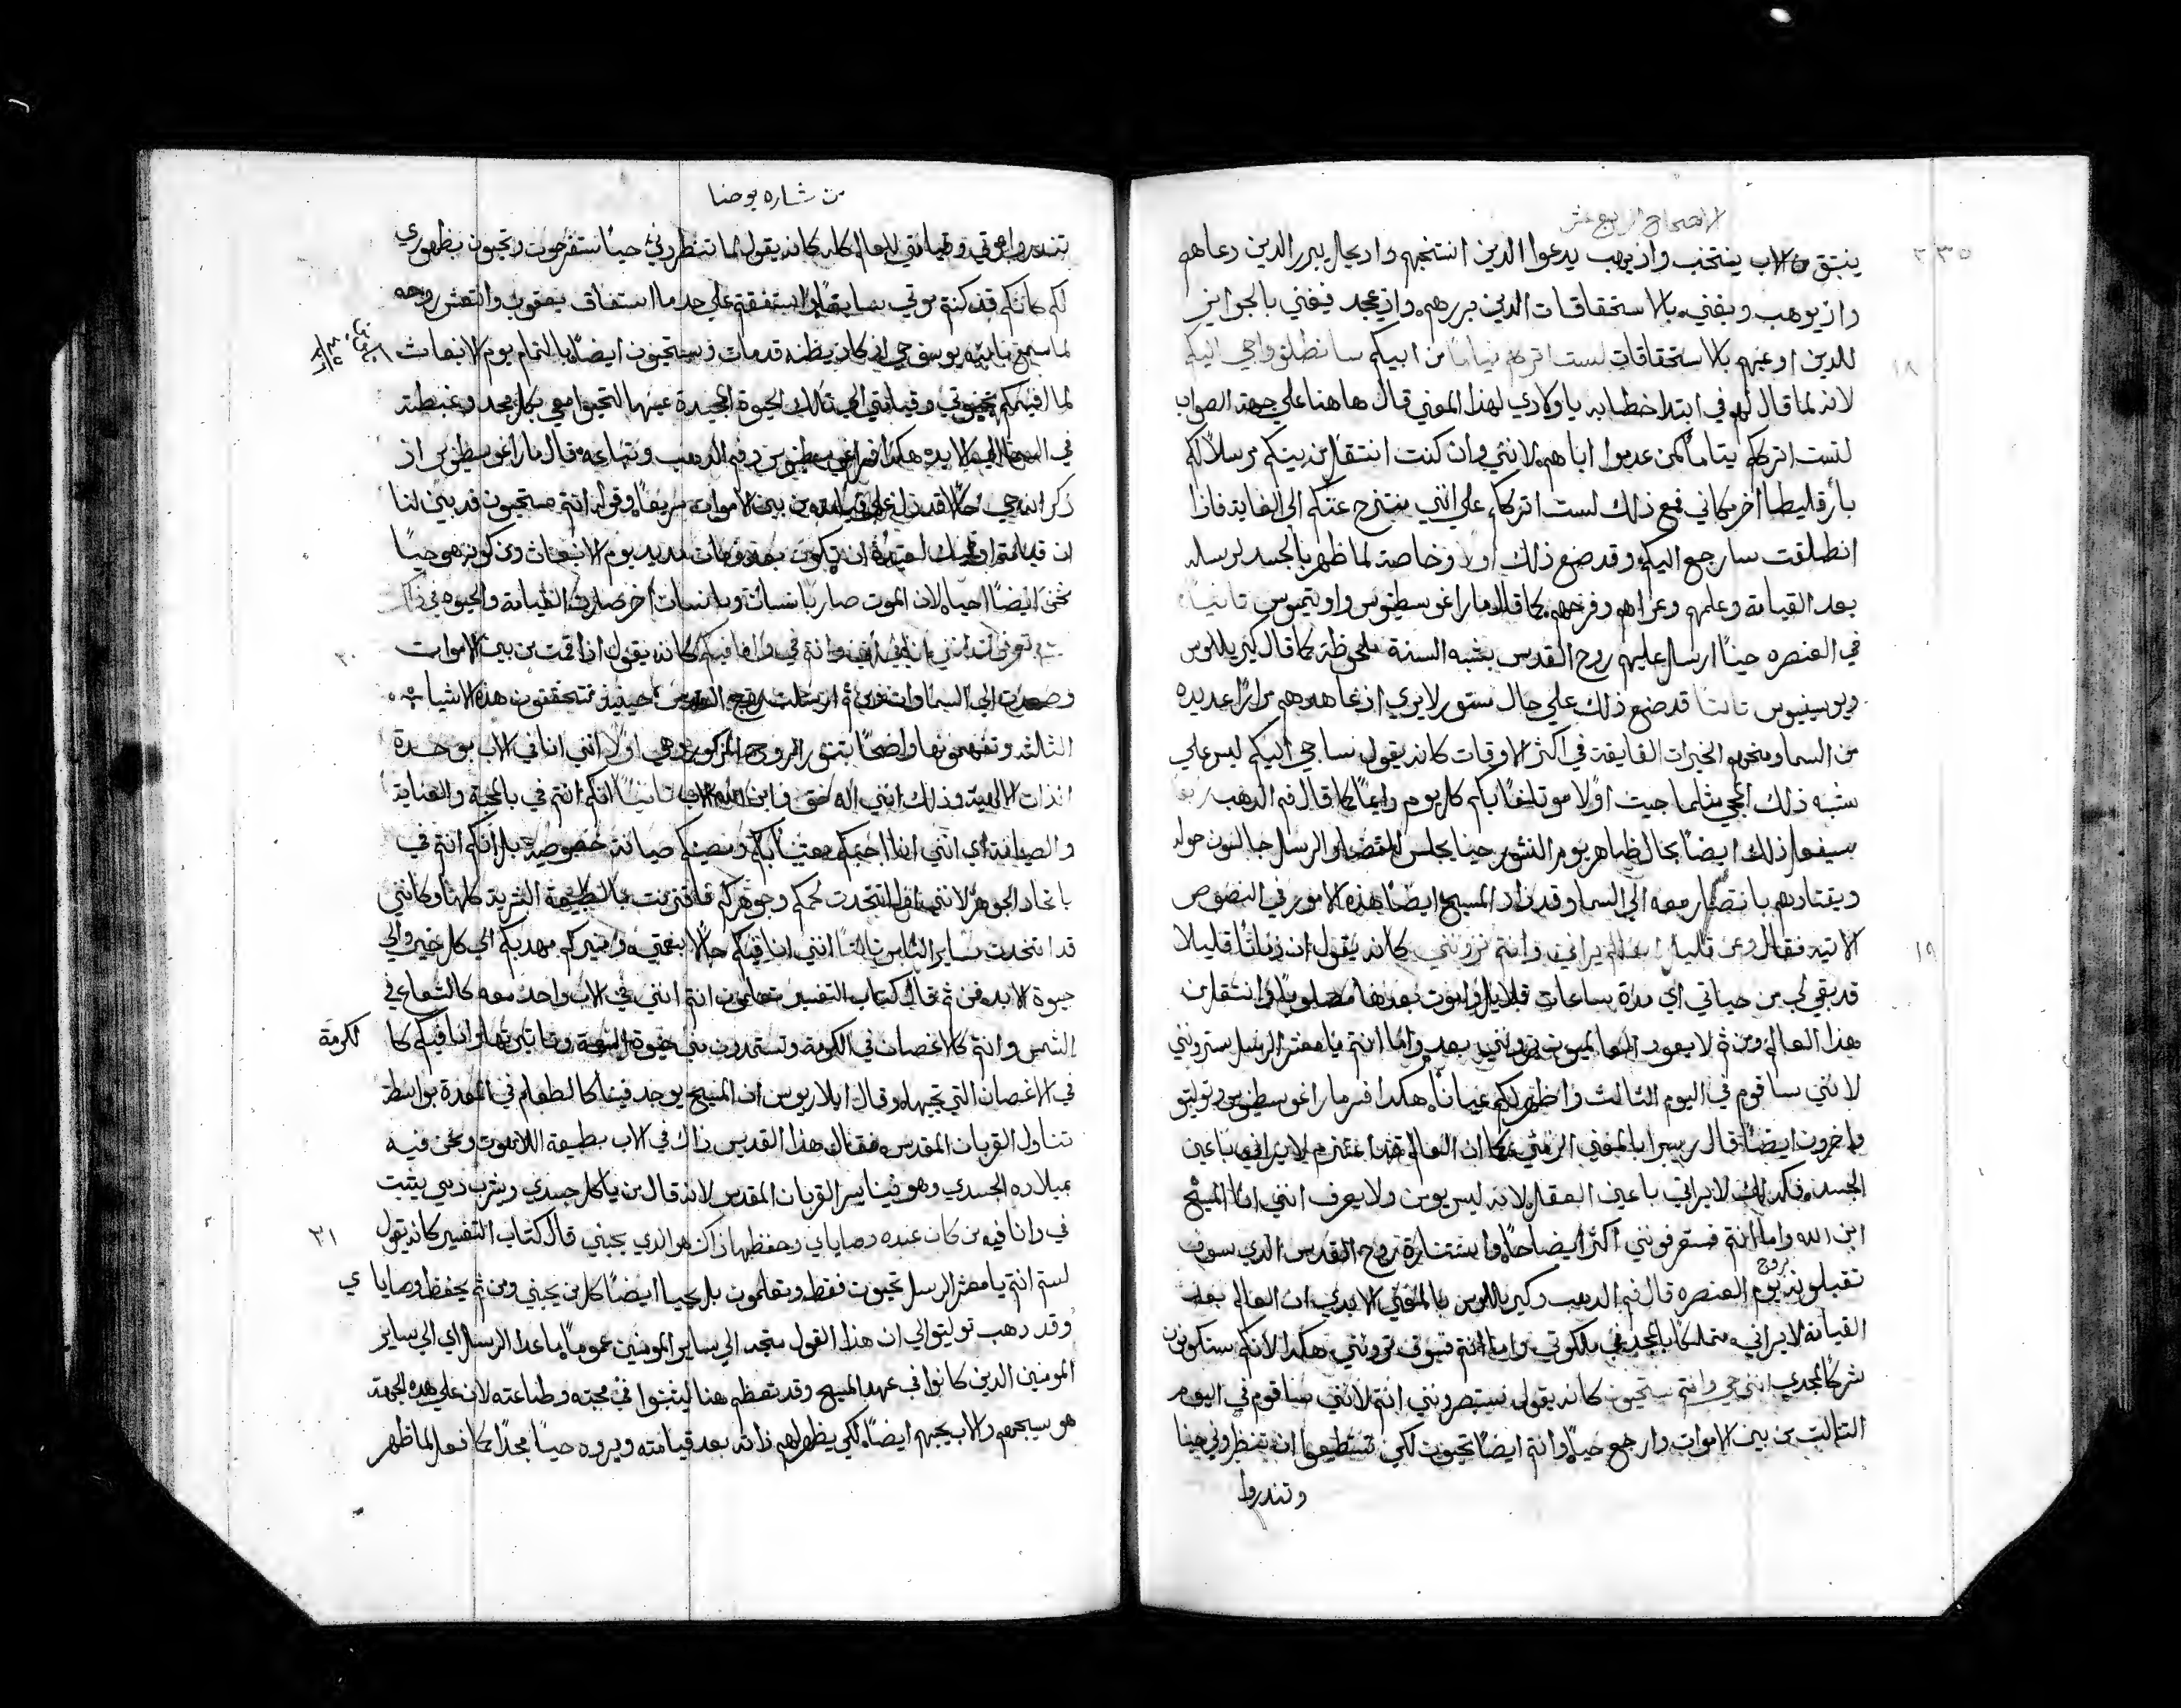 الاصحاح الرابع عشر
٣٣٥
ينبثق من الاب ينتخب واذ يوهب يدعوا الذين انتخبهم واد يحال يبرر الذين دعاهم
واذ يوهب ويغني بالاستحقاقات الذين بررهم واذ يمجد فيغني بالجوايز
١٨
للذين اوعبهم بالاستحقاقات لست اترككم يتاما من ابيكم سانطلق واجي اليكم
لانه لما قال لهم في ابتدا خطابه ياولادي لهذا المعني قال هاهنا علي جهة الصواب
لست اترككم يتاماً كمن عدموا اباهم لانني وان كنت انتقل من بينكم مرسلاً لكم
بارقليطا اخر مكاني فمع ذلك لست اترككم علي انني منتزح عنكم الي الغاية فاذا
انطلقت سارجع اليكم وقد صنع ذلك اولاً وخاصة لما ظهر بالجسد لرسله
بعد القيامة وعلمهم وعزاهم وفرحهم كما قال مار اغوسطينوس واوتيميوس ثانياً
في العنصره حيناً ارسل عليهم روح القدس بشبه السنة ملحوظة كما قال كيريللوس
ثالثا قد صنع ذلك علي حال مستور لا يري اذ تعاهدهم مراراً عديده
من السما ومنحهم الخيرات الفايقة في اكثر الاوقات كانه يقول ساجي اليكم ليس علي
شبه ذلك المجي مثلما جيت اولا موتلفاً بكم كل يوم دايماً كما قال فم الذهب رابعا
سيفعل ذلك ايضاً بحال ظاهر يوم النشور حينا يجلس للقضا والرسل جالسون حوله
ويقتادهم بانتصار معه الي السما وقد زاد المسيح ايضا هذه الامور في النصوص
١٩
الاتيه فقال وعن قليل العالم يراني وانتم ترونني كانه يقول ان زماناً قليلا
قد بقي لي من حياتي اي مدة ساعات قلايل واموت بعدها مصلوباً وانتقل من
هذا العالم ومن ثم لا يعود العالميون يرونني بعد واما انتم يا معشر الرسل سترونني
لانني ساقوم في اليوم الثالث واظهر لكم عياناً هكذا فسر مار اغوسطينوس وتوليتو
واخرون ايضاً قال ريبيرا بالمعني الرمزي كما ان العالم لا يراني باعين
الجسد فكذلك لا يراني باعين العقل لانه ليس يومن ولا يعرف انني انا المسيح
ابن الله واما انتم فستعرفونني اكثر ايضا حالاً واستنارة بروح القدس الذي سوف
تقبلونه يوم العنصره قال فم الذهب وكيريللوس بالمعني الابدي ان العالم بعد
القيامة لا يراني متملكاً بالمجد في ملكوتي واما انتم فسوف ترونني هكذا لانكم ستكونون
شركا لمجدي انني حي وانتم ستحيون كانه يقول ستبصرونني انتم لانني ساقوم في اليوم
الثالث من بين الاموات وارجع حياً وانتم ايضاً تحيون لكي تستطيعوا ان تنظروني حينا
وتنذروا
من بشاره يوحنا
تنذروا بموتي وقيامتي للعالم كله كانه يقول لما تنظرونني حياً ستفرحون وتحيون بظهوري
لكم كانكم قد كنتم موتي سابقاً واستفقتم علي حد ما استفاق يعقوب وانتعش روحه
لما سمع بان ابنه يوسف حي اذ كان يظنه قد مات وستحيون ايضاً بالتمام يوم الانبعاث
لما اقيمكم بموتي وقيامتي الي تلك الحيوة المجيدة عينها لتحيوا معي بكل مجد وغبطة
في السما الي الابد هكذا فسر اغوسطينوس وفم الذهب وتباعه قال مار اغوسطينوس اذ
ذكر انه حي حالاً قد دل علي قيامته من بين الاموات سريعاً وقوله انتم ستحيون قد بين لنا
ان قيامتنا
نحن ايضاً احيا لان الموت صار بانسان وبانسان اخر صارت القيامة والحيوه في ذلك
٢٠
تعرفون انني انا في ابي وانتم في وانا فيكم كانه يقول اذا قمت من بين الاموات
وصعدت الي السماوات ومن ثم ارسلت روح القدس حينيذ تتحققون هذه الاشيا
الثالثه وتفهمونها واضحاً بتنوير الروح المذكور وهي اولا انني انا في الاب بوحدة
الذات الالهية وذلك انني اله حق وابن الله الاب ثانياً انكم انتم في بالمحبة والعناية
والصيانة اي انني انا احبكم معتنياً بكم واصونكم صيانة خصوصية بل انكم انتم في
باتحاد الجوهر لانني اتخذت لحمكم وجوهركم فاقترنت بالطبيعة البشرية كلها وكانني
قد اتحدت بساير الناس ثالثا انني انا فيكم حالاً بنعمتي وامنيركم مهديكم الي كل خير والي
حيوة الابد فمن ثم قال كتاب التفسير تعلمون انتم انني في الاب واحد معه كالشعاع في
الشمس وانتم كالاغصان في الكرمة وتستمدون مني حيوة النعمة وتاثيرتها وانا فيكم كما
لكرمة
في الاغصان التي تحبها وقال ايلاريوس ان المسيح يوجد فينا كالطعام في المعدة بواسطة
تناول القربان المقدس فقال هذا القديس ذاك في الاب بطبيعة اللاهوت ونحن فيه
بميلاده الجسدي وهو فينا بسر القربان المقدس لانه قال من ياكل جسدي ويشرب دمي يثبت
٢١
في وانا فيه من كان عنده وصاياي وحفظها ذاك هو الذي يحبني قال كتاب التفسير كانه يقول
لستم انتم يا معشر الرسل تحبون فقط وتعلمون بل يحيا ايضاً كل من يحبني ومن ثم يحفظ وصاياي
وقد ذهب توليتو الي ان هذا القول متجه الي ساير المومنين عموماً ما عدا الرسل اي الي ساير
المومنين الذين كانوا في عهد المسيح وقد تعظم هنا ليثبتوا في محبته وطاعته لان علي هذه الجهة
هو سيحبهم والاب يحبهم ايضاً لكي يظهر لهم ذاته بعد قيامته ويروه حياً مجداً كما فعل لما ظهر